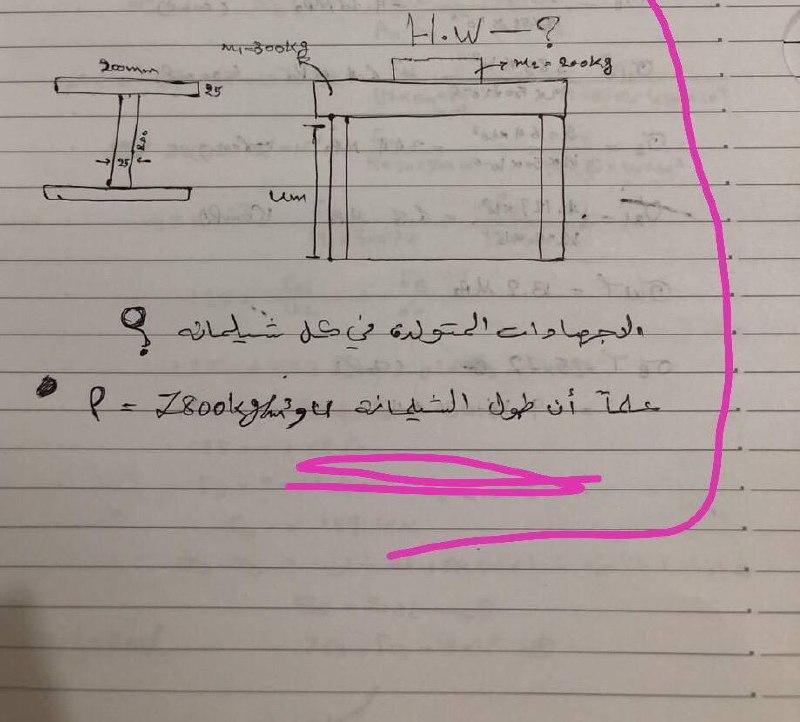 H.W - ?
m1=300kg
m2=200kg
200mm
25
25
4m
الاجهادات المتولدة في كل شيلمانه ؟
علماً أن طول الشيلمانه 4 و ρ = 7800kg/m³